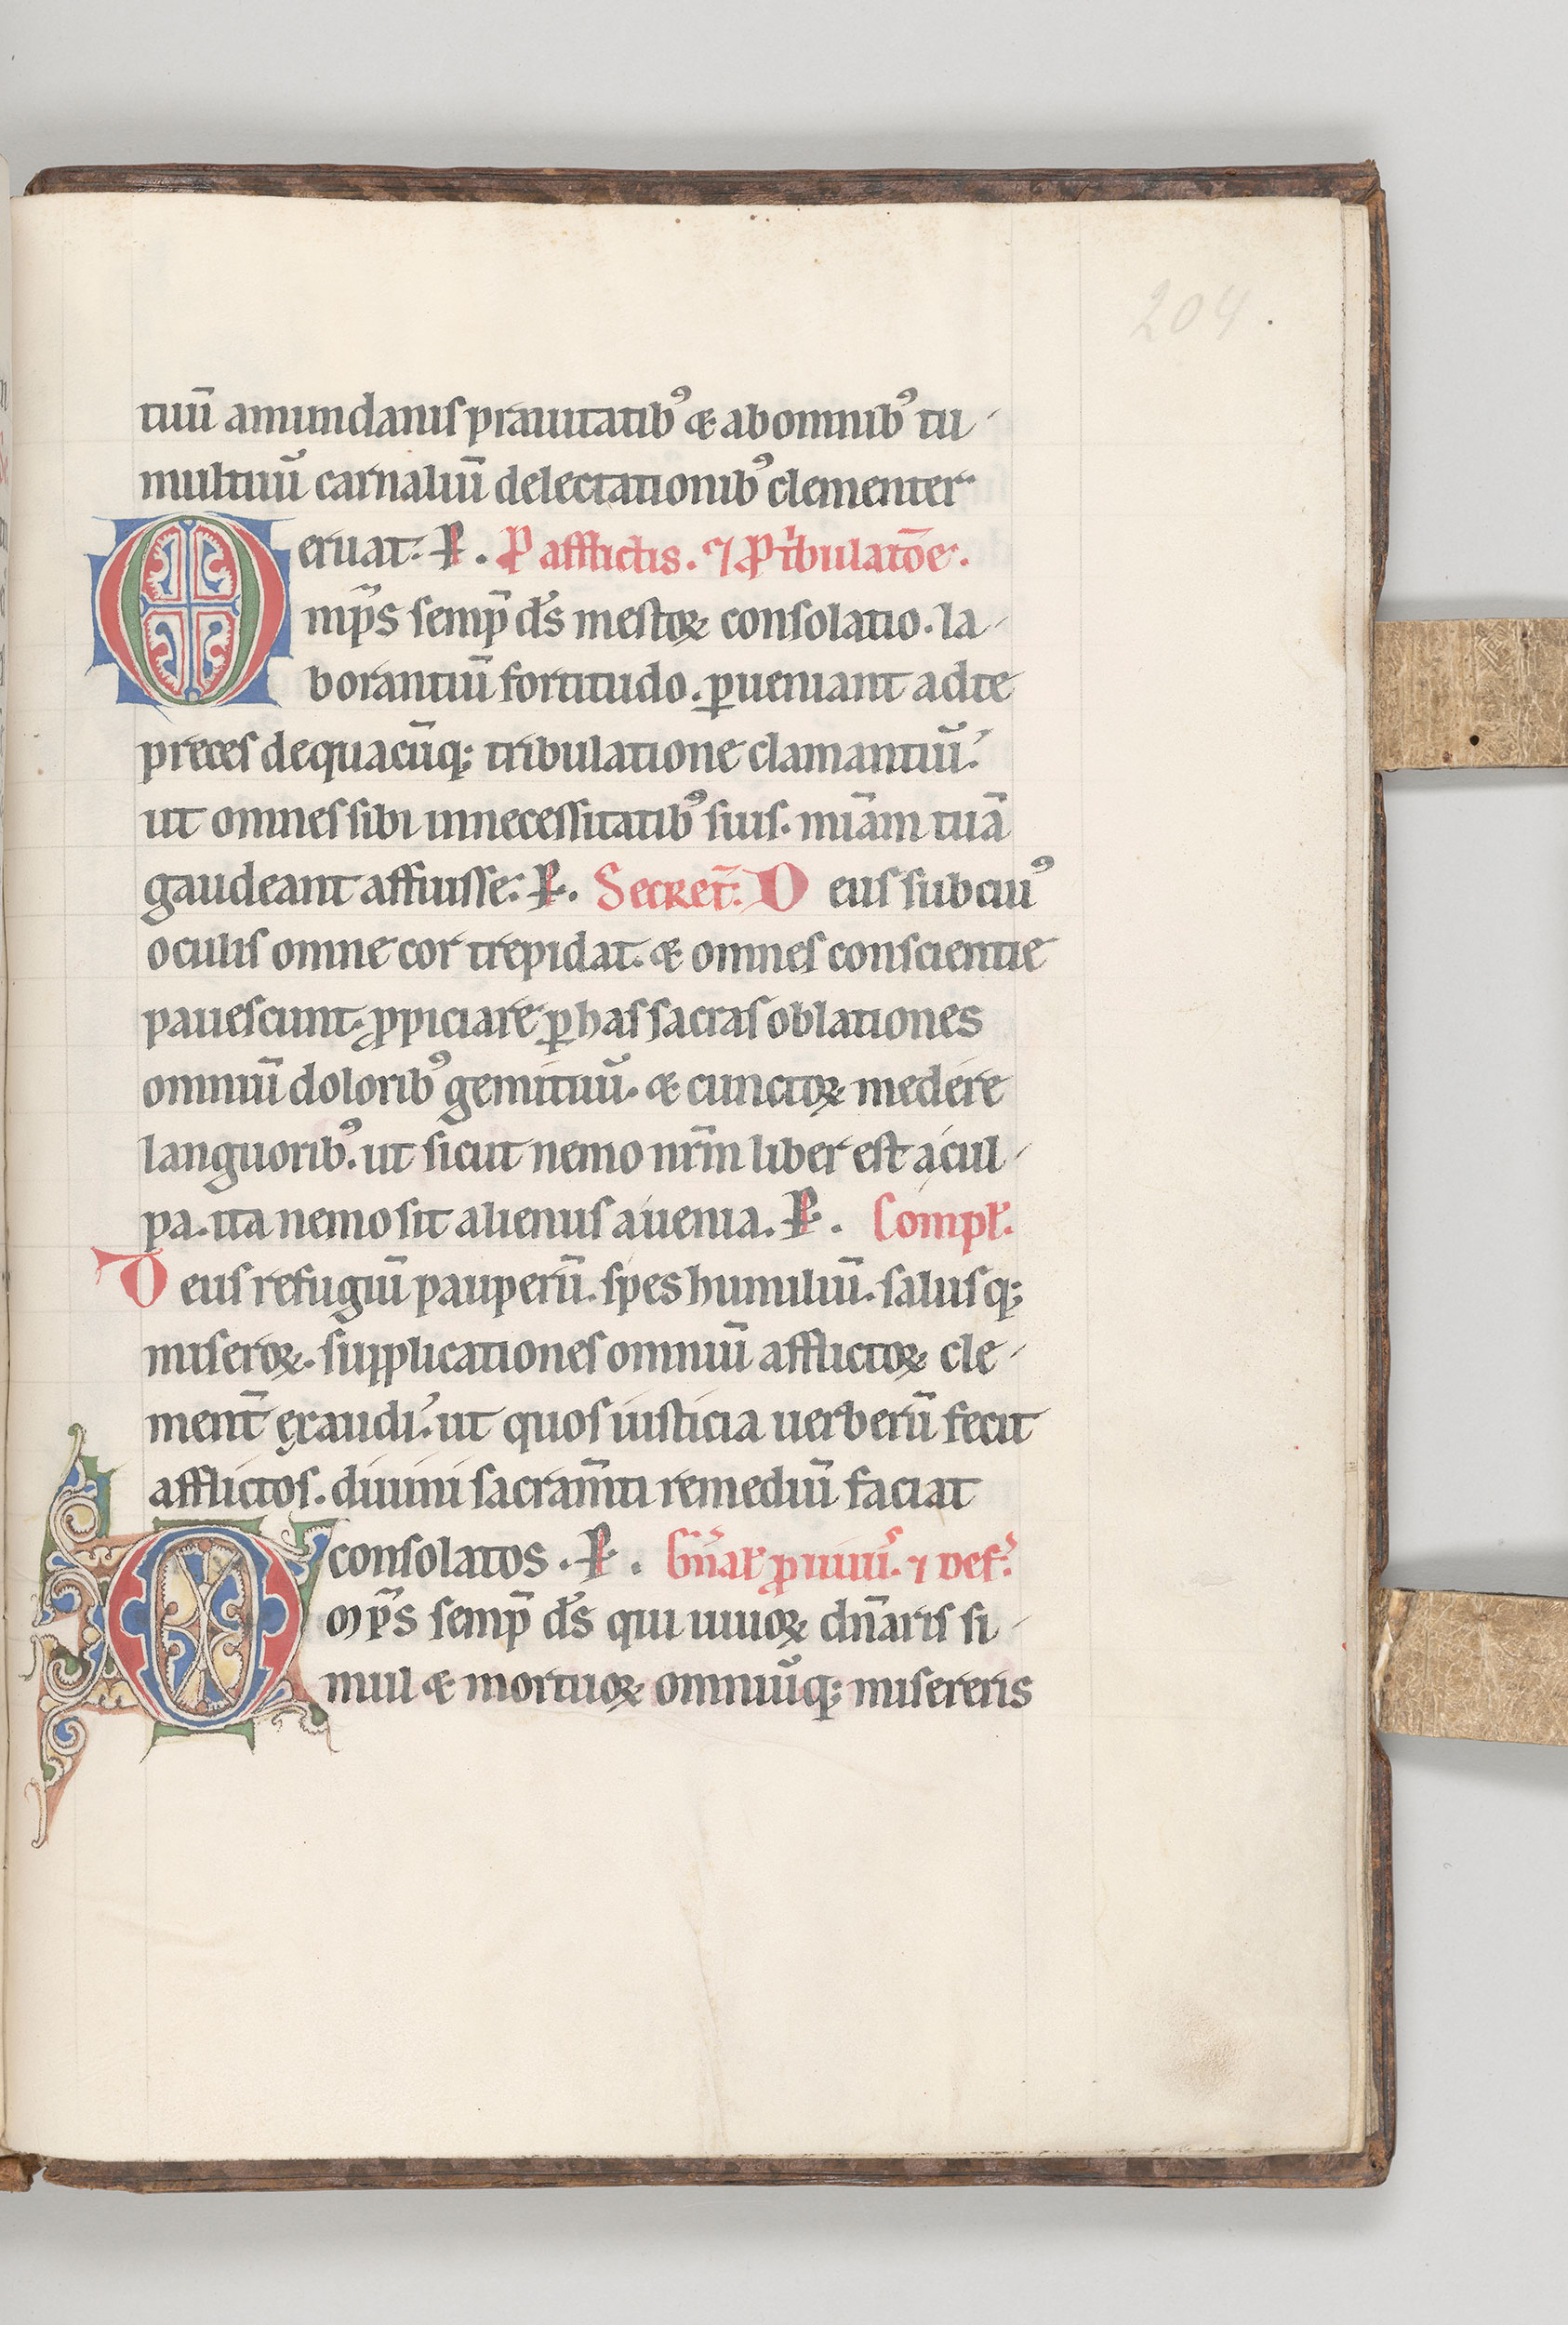 204.
tuū amundanis prauitatibꝰ & abomnibꝰ tu-
multuū carnaliū delectationibꝰ clementer
eruat. P̵. P afflictis. ⁊ P tͥbulatōe.
Omp̄s semp̄ ds̄ mestoꝝ consolatio. la-
borantiū fortitudo. ꝑueniant adte
preces dequacūq; tribulatione clamantiū.
ut omnes sibi innecessitatibꝰ suis. miām tuā
gaudeant affuisse. P̵. Secret̄. Deus subcuiꝰ
oculis omne cor trepidat. & omnes conscientie
pauescunt. ꝓpiciare ꝑ has sacras oblationes
omniū doloribꝰ gemituū. & cunctoꝝ medere
languoribꝰ. ut sicut nemo nr̄m liber est a cul-
pa. ita nemo sit alienus a uenia. P̵. Compł.
Deus refugiū pauperū. spes humiliū. salusq;
miseroꝝ. supplicationes omniū afflictoꝝ cle-
ment̄ ęxaudi. ut quos iusticia uerberū fecit
afflictos. diuini sacram̄ti remediū faciat
consolatos. P̵. Gn̄ał ꝓ uiuꝭ. ⁊ def.
Omp̄s semp̄ ds̄ qui uiuoꝝ dn̄aris si-
mul & mortuoꝝ omniūq; misereris